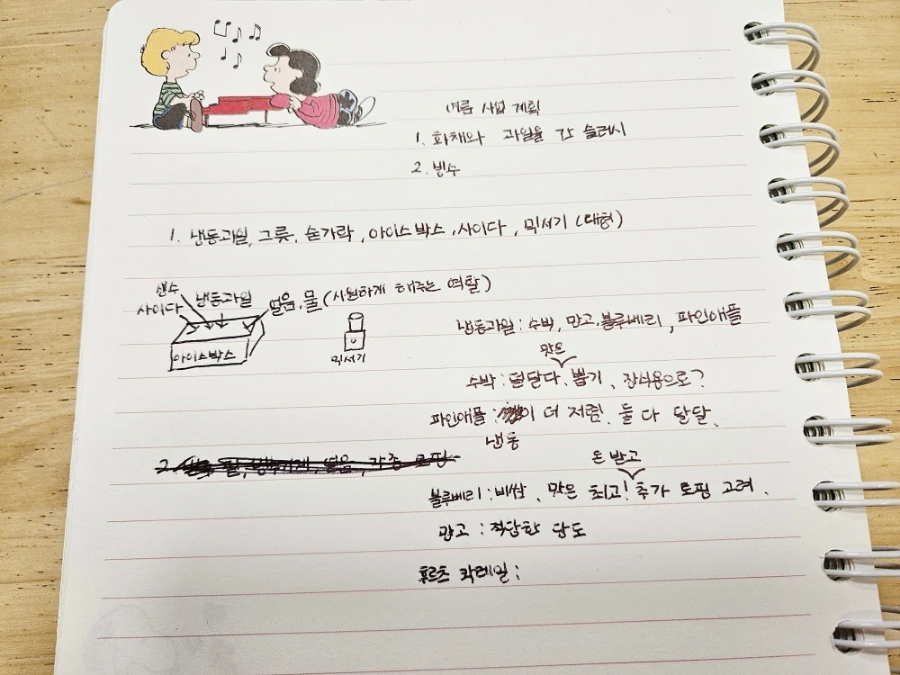 여름 사업 계획
1. 화채와 과일을 간 슬러시
2. 빙수
1. 냉동과일, 그릇, 숟가락, 아이스박스, 사이다, 믹서기 (대형)
생수
사이다
냉동과일
얼음, 물 (시원하게 해주는 역할)
아이스박스
믹서기
냉동과일 : 수박, 망고, 블루베리, 파인애플
맛은
수박 : 덜달다. 뽑기, 장식용으로?
파인애플 : 이 더 저렴. 둘 다 달달.
냉동
2. 팥, 빙수기계, 얼음, 각종 토핑
돈 받고
블루베리 : 비쌈, 맛은 최고! 추가 토핑 고려.
망고 : 적당한 당도
후르츠 칵테일 :